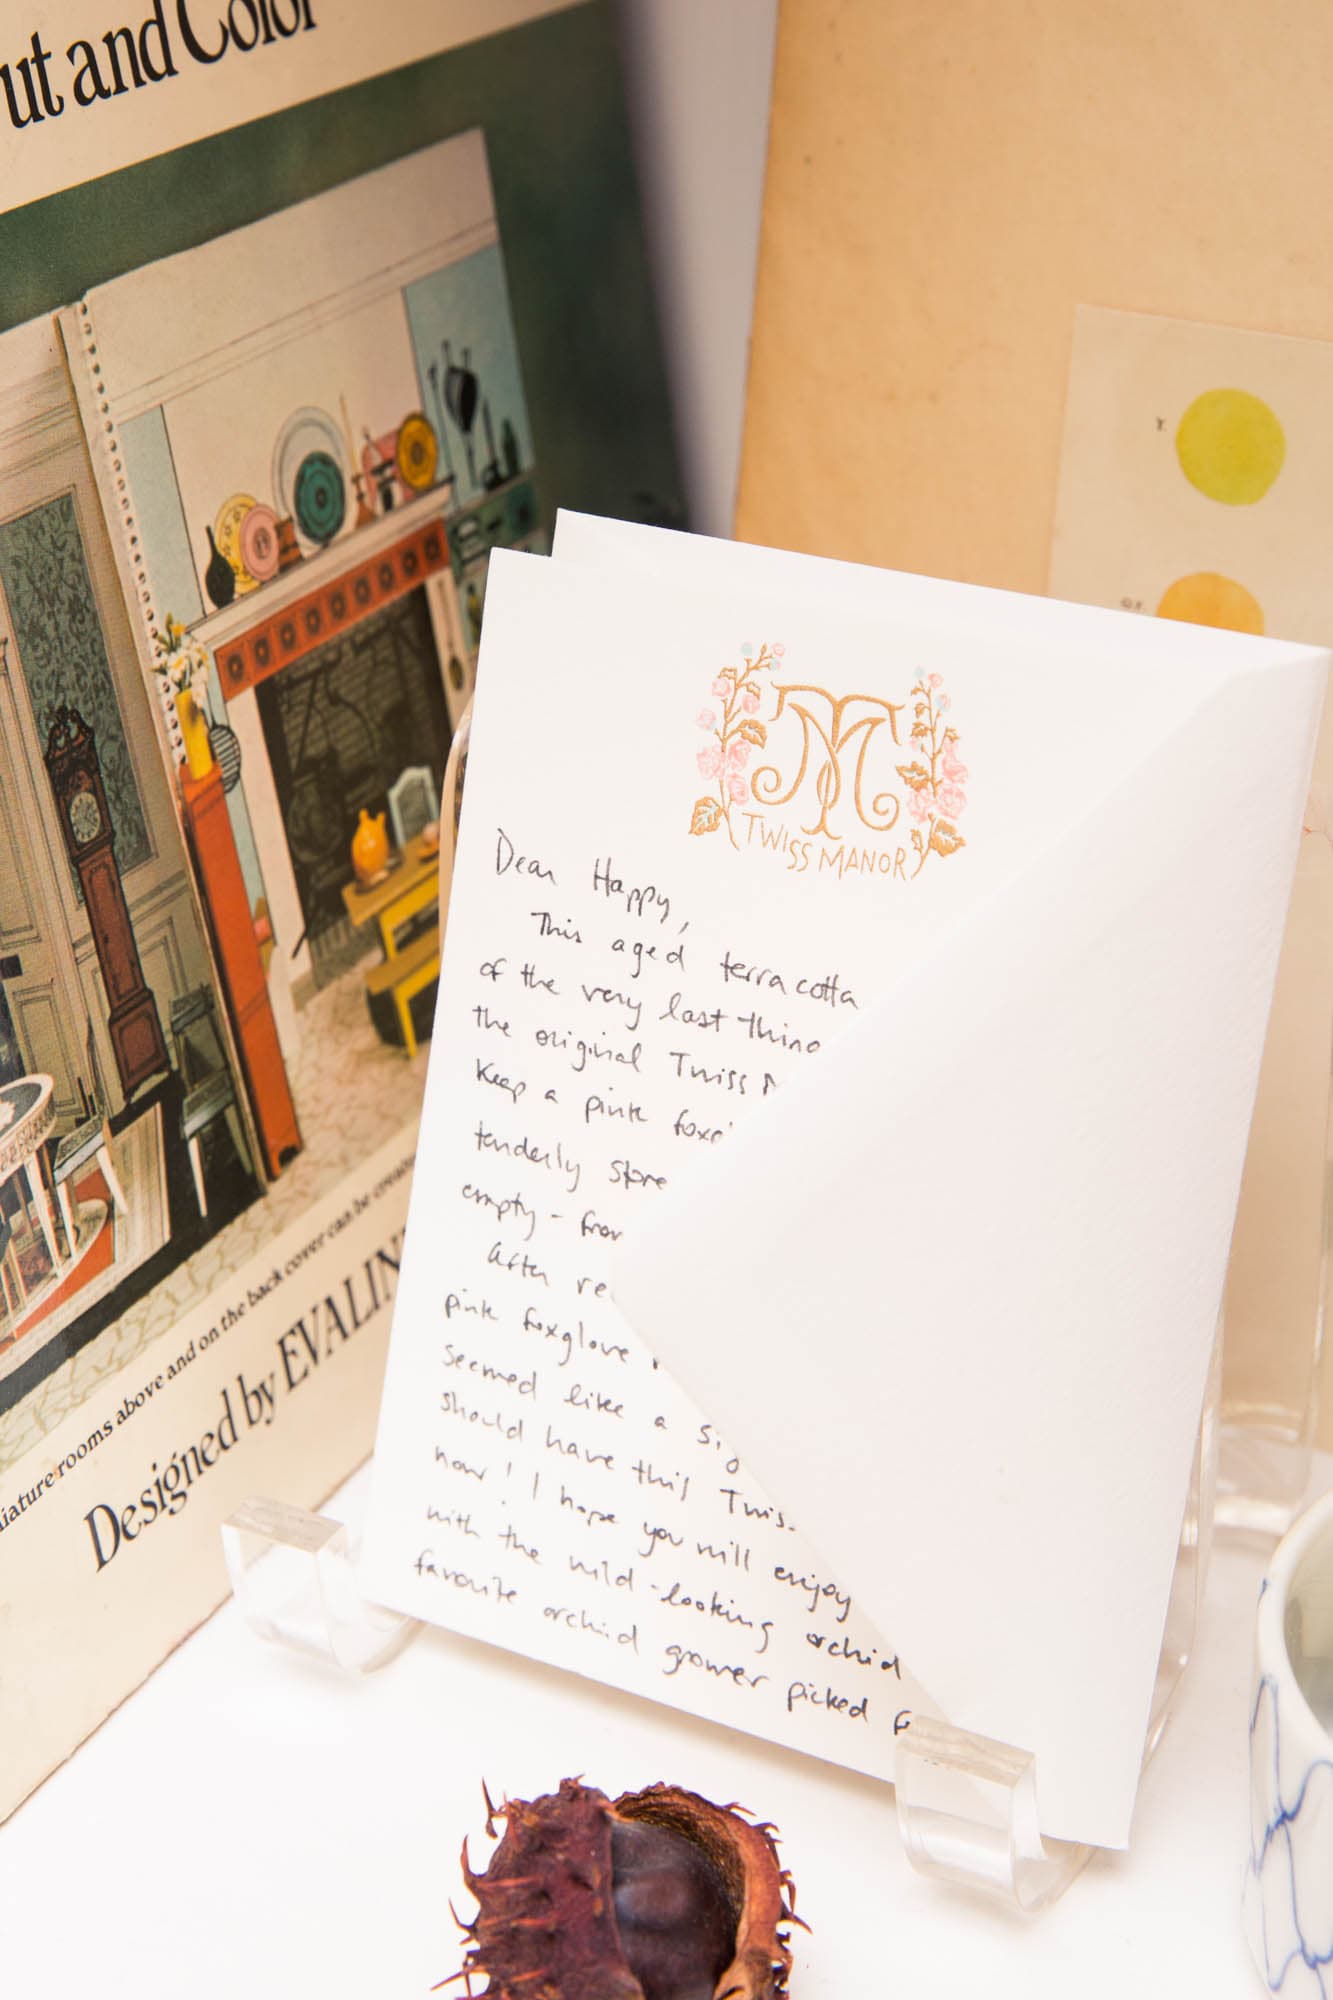 ut and Color
iature rooms above and on the back cover can be creat
Designed by EVALIN
Y.
TM
TWISS MANOR
Dear Happy,
This aged terracotta
of the very last thing
the original Twiss
Keep a pink foxg
tenderly store
empty - from
After re
pink foxglove
seemed like a sig
should have this Twis
now! I hope you will enjoy
with the wild-looking orchid
favorite orchid grower picked f